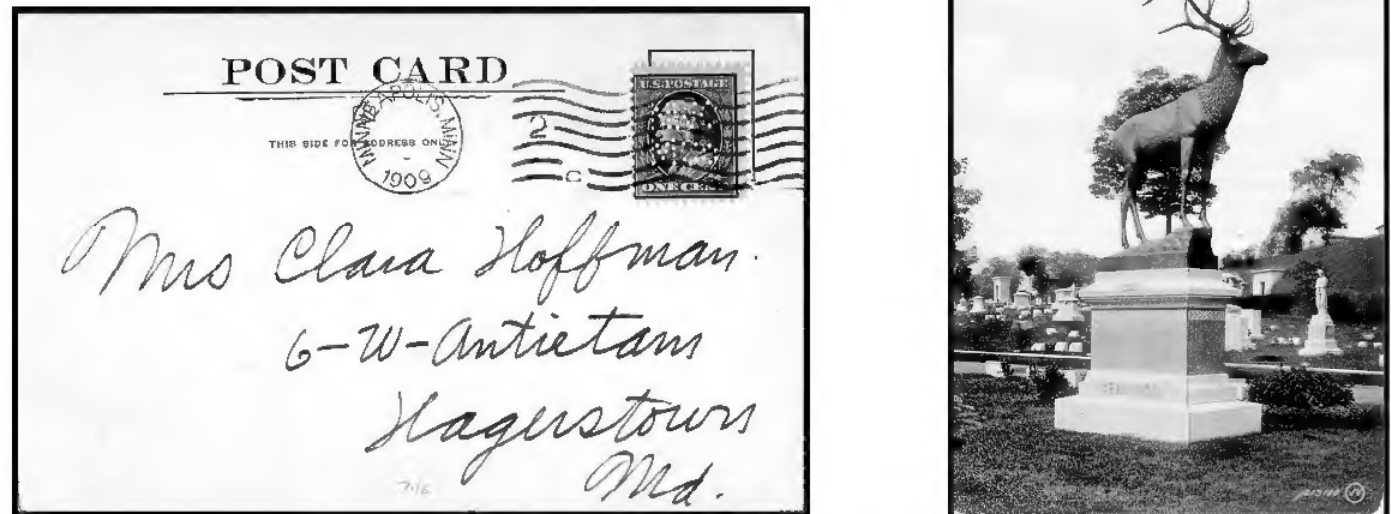 POST CARD
THIS SIDE FOR ADDRESS ONLY
MINNEAPOLIS, MINN.
1909
2
C
U.S. POSTAGE
ONE CENT
Mrs Clara Hoffman.
6-W-Antietam
Hagerstown
Md.
7-16